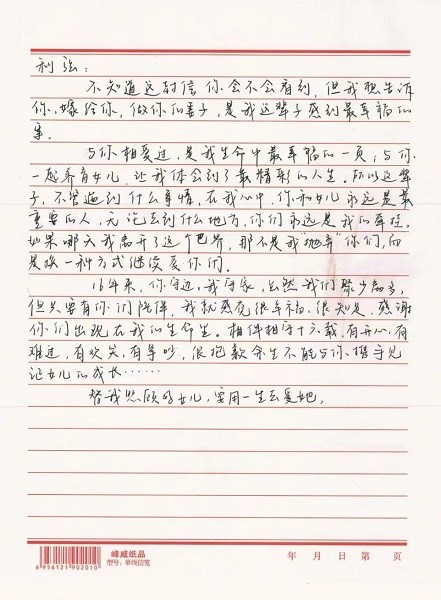 利强：
不知道这封信你会不会看到，但我想告诉
你，嫁给你，做你的妻子，是我这辈子感到最幸福的
事。
与你相爱过，是我生命中最幸福的一页；与你
一起养育女儿，让我体会到了最精彩的人生。所以这辈
子，不管遇到什么事情，在我心中，你和女儿永远是最
重要的人，无论去到什么地方，你们永远是我的牵挂。
如果哪天我离开了这个世界，那不是我“抛弃”你们，而
是换一种方式继续爱你们。
16年来，你守边，我守家，虽然我们聚少离多，
但只要有你们陪伴，我就感觉很幸福，很知足，感谢
你们出现在我的生命里。相伴相守十六载，有开心，有
难过，有欢笑，有争吵，很抱歉余生不能与你携手见
证女儿的成长……
替我照顾好女儿，要用一生去爱她，
6956121902010
峰威纸品
型号：单线信笺
年 月 日 第 页